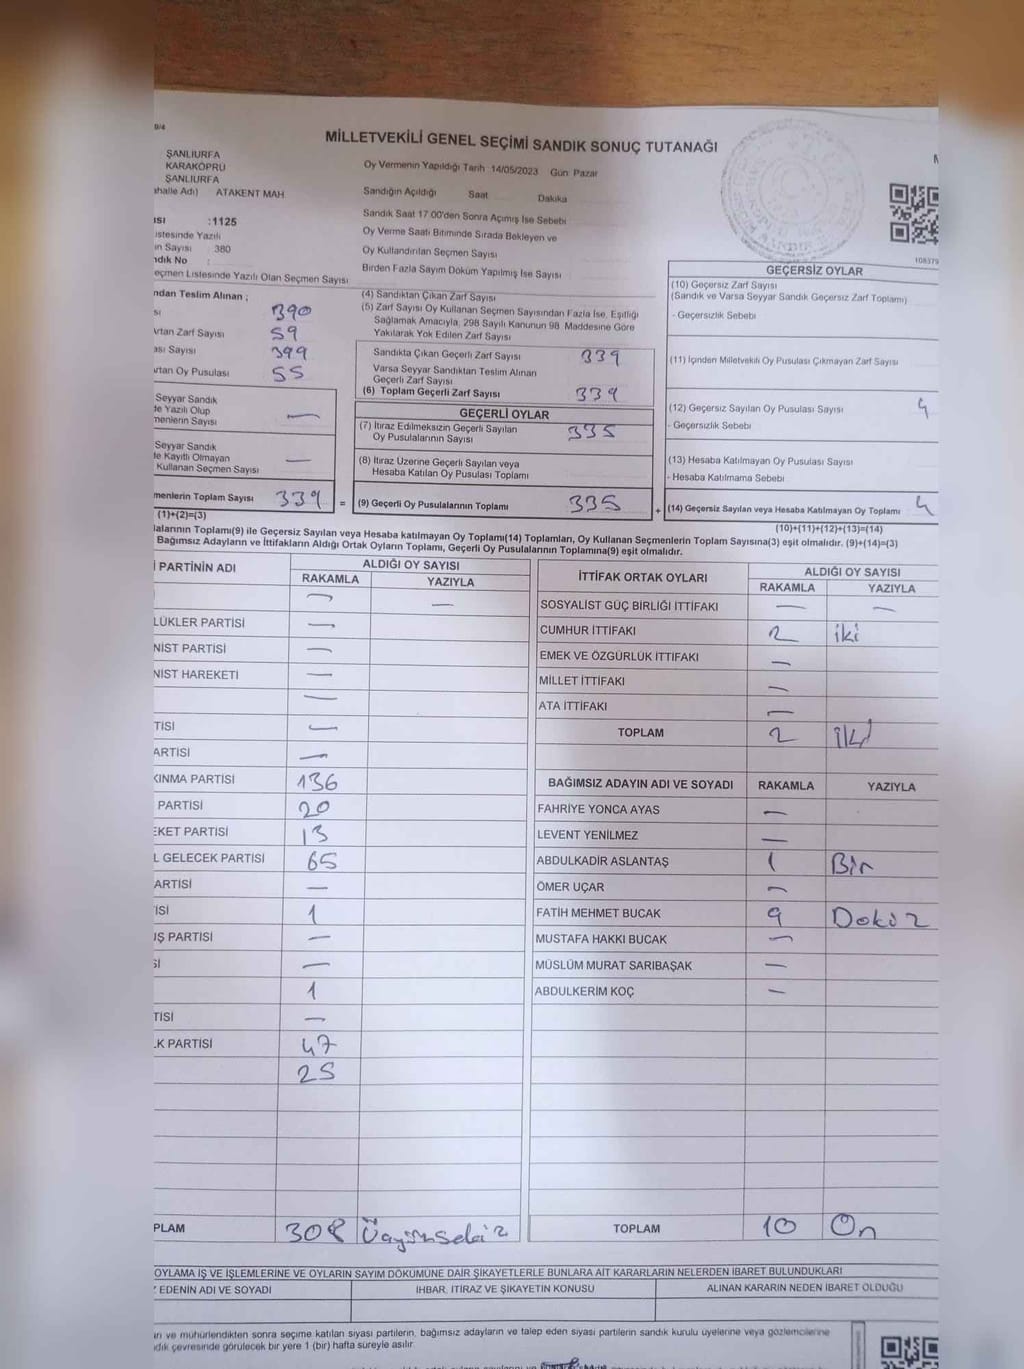 9/4
MİLLETVEKİLİ GENEL SEÇİMİ SANDIK SONUÇ TUTANAĞI
ŞANLIURFA
KARAKÖPRÜ
ŞANLIURFA
ahalle Adı) ATAKENT MAH
Oy Vermenin Yapıldığı Tarih 14/05/2023 Gün Pazar
Sandığın Açıldığı Saat Dakika
Sandık Saat 17.00'den Sonra Açımış İse Sebebi
Oy Verme Saati Bitiminde Sırada Bekleyen ve
Oy Kullandırılan Seçmen Sayısı
Birden Fazla Sayım Döküm Yapılmış İse Sayısı
ısı :1125
istesinde Yazılı
in Sayısı 380
ndık No
eçmen Listesinde Yazılı Olan Seçmen Sayısı
ndan Teslim Alınan ;
sı 390
rtan Zarf Sayısı 59
ası Sayısı 399
rtan Oy Pusulası 55
Seyyar Sandık
de Yazılı Olup
menlerin Sayısı —
Seyyar Sandık
de Kayıtlı Olmayan
Kullanan Seçmen Sayısı —
menlerin Toplam Sayısı 339 =
(1)+(2)=(3)
(4) Sandıktan Çıkan Zarf Sayısı
(5) Zarf Sayısı Oy Kullanan Seçmen Sayısından Fazla İse, Eşitliği
Sağlamak Amacıyla, 298 Sayılı Kanunun 98. Maddesine Göre
Yakılarak Yok Edilen Zarf Sayısı
Sandıkta Çıkan Geçerli Zarf Sayısı 339
Varsa Seyyar Sandıktan Teslim Alınan
Geçerli Zarf Sayısı
(6) Toplam Geçerli Zarf Sayısı 339
GEÇERLİ OYLAR
(7) İtiraz Edilmeksizin Geçerli Sayılan
Oy Pusulalarının Sayısı 335
(8) İtiraz Üzerine Geçerli Sayılan veya
Hesaba Katılan Oy Pusulası Toplamı
(9) Geçerli Oy Pusulalarının Toplamı 335 +
108379
GEÇERSİZ OYLAR
(10) Geçersiz Zarf Sayısı
(Sandık ve Varsa Seyyar Sandık Geçersiz Zarf Toplamı)
- Geçersizlik Sebebi
(11) İçinden Milletvekili Oy Pusulası Çıkmayan Zarf Sayısı
(12) Geçersiz Sayılan Oy Pusulası Sayısı 4
- Geçersizlik Sebebi
(13) Hesaba Katılmayan Oy Pusulası Sayısı
- Hesaba Katılmama Sebebi
(14) Geçersiz Sayılan veya Hesaba Katılmayan Oy Toplamı 4
(10)+(11)+(12)+(13)=(14)
lalarının Toplamı(9) ile Geçersiz Sayılan veya Hesaba katılmayan Oy Toplamı(14) Toplamları, Oy Kullanan Seçmenlerin Toplam Sayısına(3) eşit olmalıdır. (9)+(14)=(3)
Bağımsız Adayların ve İttifakların Aldığı Ortak Oyların Toplamı, Geçerli Oy Pusulalarının Toplamına(9) eşit olmalıdır.
İ PARTİNİN ADI ALDIĞI OY SAYISI
RAKAMLA YAZIYLA
— —
LÜKLER PARTİSİ —
NİST PARTİSİ —
NİST HAREKETİ —
—
TİSİ —
ARTİSİ —
KINMA PARTİSİ 136
PARTİSİ 20
EKET PARTİSİ 13
L GELECEK PARTİSİ 65
ARTİSİ —
İSİ 1
IŞ PARTİSİ —
Sİ —
1
TİSİ —
LK PARTİSİ 47
25
PLAM 308
İTTİFAK ORTAK OYLARI ALDIĞI OY SAYISI
RAKAMLA YAZIYLA
SOSYALİST GÜÇ BİRLİĞİ İTTİFAKI — —
CUMHUR İTTİFAKI 2 iki
EMEK VE ÖZGÜRLÜK İTTİFAKI —
MİLLET İTTİFAKI —
ATA İTTİFAKI —
TOPLAM 2 iki
BAĞIMSIZ ADAYIN ADI VE SOYADI RAKAMLA YAZIYLA
FAHRİYE YONCA AYAS —
LEVENT YENİLMEZ —
ABDULKADİR ASLANTAŞ 1 Bir
ÖMER UÇAR —
FATİH MEHMET BUCAK 9 Dokuz
MUSTAFA HAKKI BUCAK —
MÜSLÜM MURAT SARIBAŞAK —
ABDULKERİM KOÇ —
TOPLAM 10 On
OYLAMA İŞ VE İŞLEMLERİNE VE OYLARIN SAYIM DÖKÜMÜNE DAİR ŞİKAYETLERLE BUNLARA AİT KARARLARIN NELERDEN İBARET BULUNDUKLARI
EDENİN ADI VE SOYADI İHBAR, İTİRAZ VE ŞİKAYETİN KONUSU ALINAN KARARIN NEDEN İBARET OLDUĞU
an ve mühürlendikten sonra seçime katılan siyasi partilerin, bağımsız adayların ve talep eden siyasi partilerin sandık kurulu üyelerine veya gözlemcilerine
ndık çevresinde görülecek bir yere 1 (bir) hafta süreyle asılır.